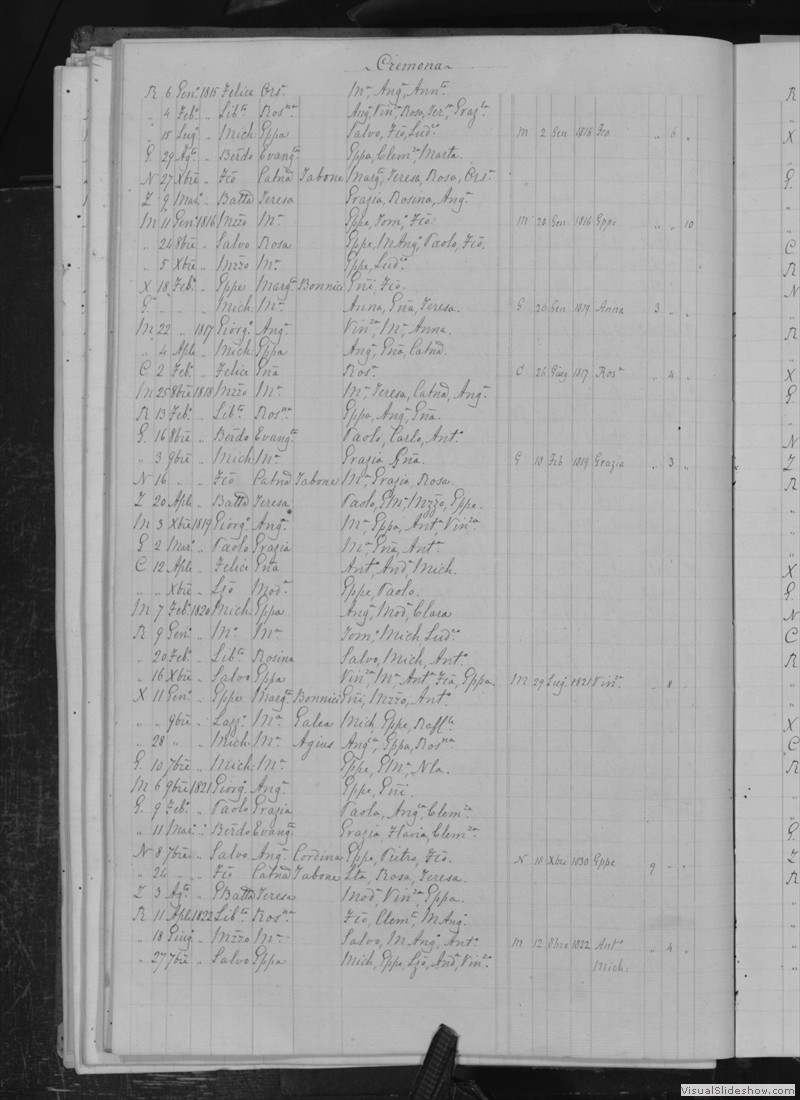 Cremona
R 6 Genº 1815 Felice Orsª Mª, Angª, Annª. R
„ 4 Febº „ Libª Rosⁿᵃ Angª, Vinᶻᵃ, Rosa, Terª, Grazª.
„ 15 Lugº „ Mich Gppa Salvo, Fcõ, Ludª. M 2 Gen 1818 Fcõ „ 6 „ X
G. 29 Agᵗᵒ „ Berdo Evangᵗᵃ Gppa, Clemᶻᵃ, Marta.
N 27 Xbre „ Fcõ Catñã Tabone Margª, Teresa, Rosa, Orsª. G.
Z 9 Marº „ Batta Teresa Grazia, Rosina, Angª.
M 11 Genº 1816 Mzzo Mª Gppe, Tomº, Fcõ. M 20 Gen 1816 Gppe „ „ 10
„ 24 8bre „ Salvo Rosa Gppe, M Angª, Paolo, Fcõ. C
„ 5 Xbre „ Mzzo Mª Gppe, Ludª. R
X 18 Febº „ Gppe Margª Bonnici Gñi, Fcõ. N
G. „ „ „ Mich Mª Anna, Gña, Teresa. G 20 Gen 1819 Anna 3 „ „
M 22 „ 1817 Giorgº Angª Vinᶻᵃ, Mª, Anna. R
„ 4 Aple „ Mich Gppa Angª, Gña, Catñã.
C 2 Febº „ Felice Gña Rosª. C 26 Giug 1817 Rosª „ 4 „ X
M 25 8bre 1818 Mzzo Mª Mª, Teresa, Catñã, Angª. G.
R 13 Febº „ Libª Rosⁿᵃ Gppa, Angª, Gña.
G. 16 8bre „ Berdo Evangᵗᵃ Paolo, Carlo, Antº. N
„ 3 9bre „ Mich Mª Grazia, Gña. G 18 Feb 1819 Grazia „ 3 „ Z
N 16 „ „ Fcõ Catñã Tabone Mª, Grazia, Rosa. R
Z 20 Aple „ Batta Teresa Paolo, GMª, Mzzo, Gppe.
M 3 Xbre 1819 Giorgº Angª Mª, Gppa, Antª, Vinᶻᵃ.
G 2 Marº „ Paolo Grazia Mª, Gña, Antª.
C 12 Aple „ Felice Gña Antº, Andª, Mich. X
„ „ Xbre „ Ljõ Modª Gppe, Paolo. G.
M 7 Febº 1820 Mich Gppa Angª, Modª, Clara N
R 9 Genº „ Mº Mª Tomº, Mich, Ludº. C
„ 20 Febº „ Libª Rosina Salvo, Mich, Antº. R
„ 16 Xbre „ Salvo Gppa Vinᶻᵒ, Mª, Antº, Fcã, Gppa. M 29 Lug 1821 Vinº „ 8 „
X 11 Genº „ Gppe Margª Bonnici Gñi, Mzzo, Antº.
„ „ 9bre „ Lazzº Mª Galea Mich, Gppe, Rafflª. X
„ 28 „ „ Mich Mª Agius Angª, Gppa, Rosⁿᵃ C
G. 10 7bre „ Mich Mª Gppe, GMª, Nla. R
M 6 9bre 1821 Giorgº Angª Gppe, Gñi.
G. 9 Febº „ Paolo Grazia Paola, Angª, Clemᶻᵃ.
„ 11 Marº „ Berdo Evangᵗᵃ Grazia, Flavia, Clemᶻᵃ. G.
N 8 7bre „ Salvo Angª Cordina Gppe, Pietro, Fcõ. N 18 Xbre 1830 Gppe 9 „ „ Z
„ 24 „ „ Fcõ Catñã Tabone Lta, Rosa, Teresa. R
Z 3 Agᵗᵒ „ GBatta Teresa Modª, Vinᶻᵃ, Gppa.
R 11 Aple 1822 Libª Rosⁿᵃ Fcõ, Clemᵉ, M Angª.
„ 18 Giugº „ Mzzo Mª Salvo, M Angª, Antº. M 12 8bre 1822 Antº „ 4 „
„ 27 7bre „ Salvo Gppa Mich, Gppe, Ljõ, Andª, Vinᶻᵒ. Mich.
VisualSlideshow.com